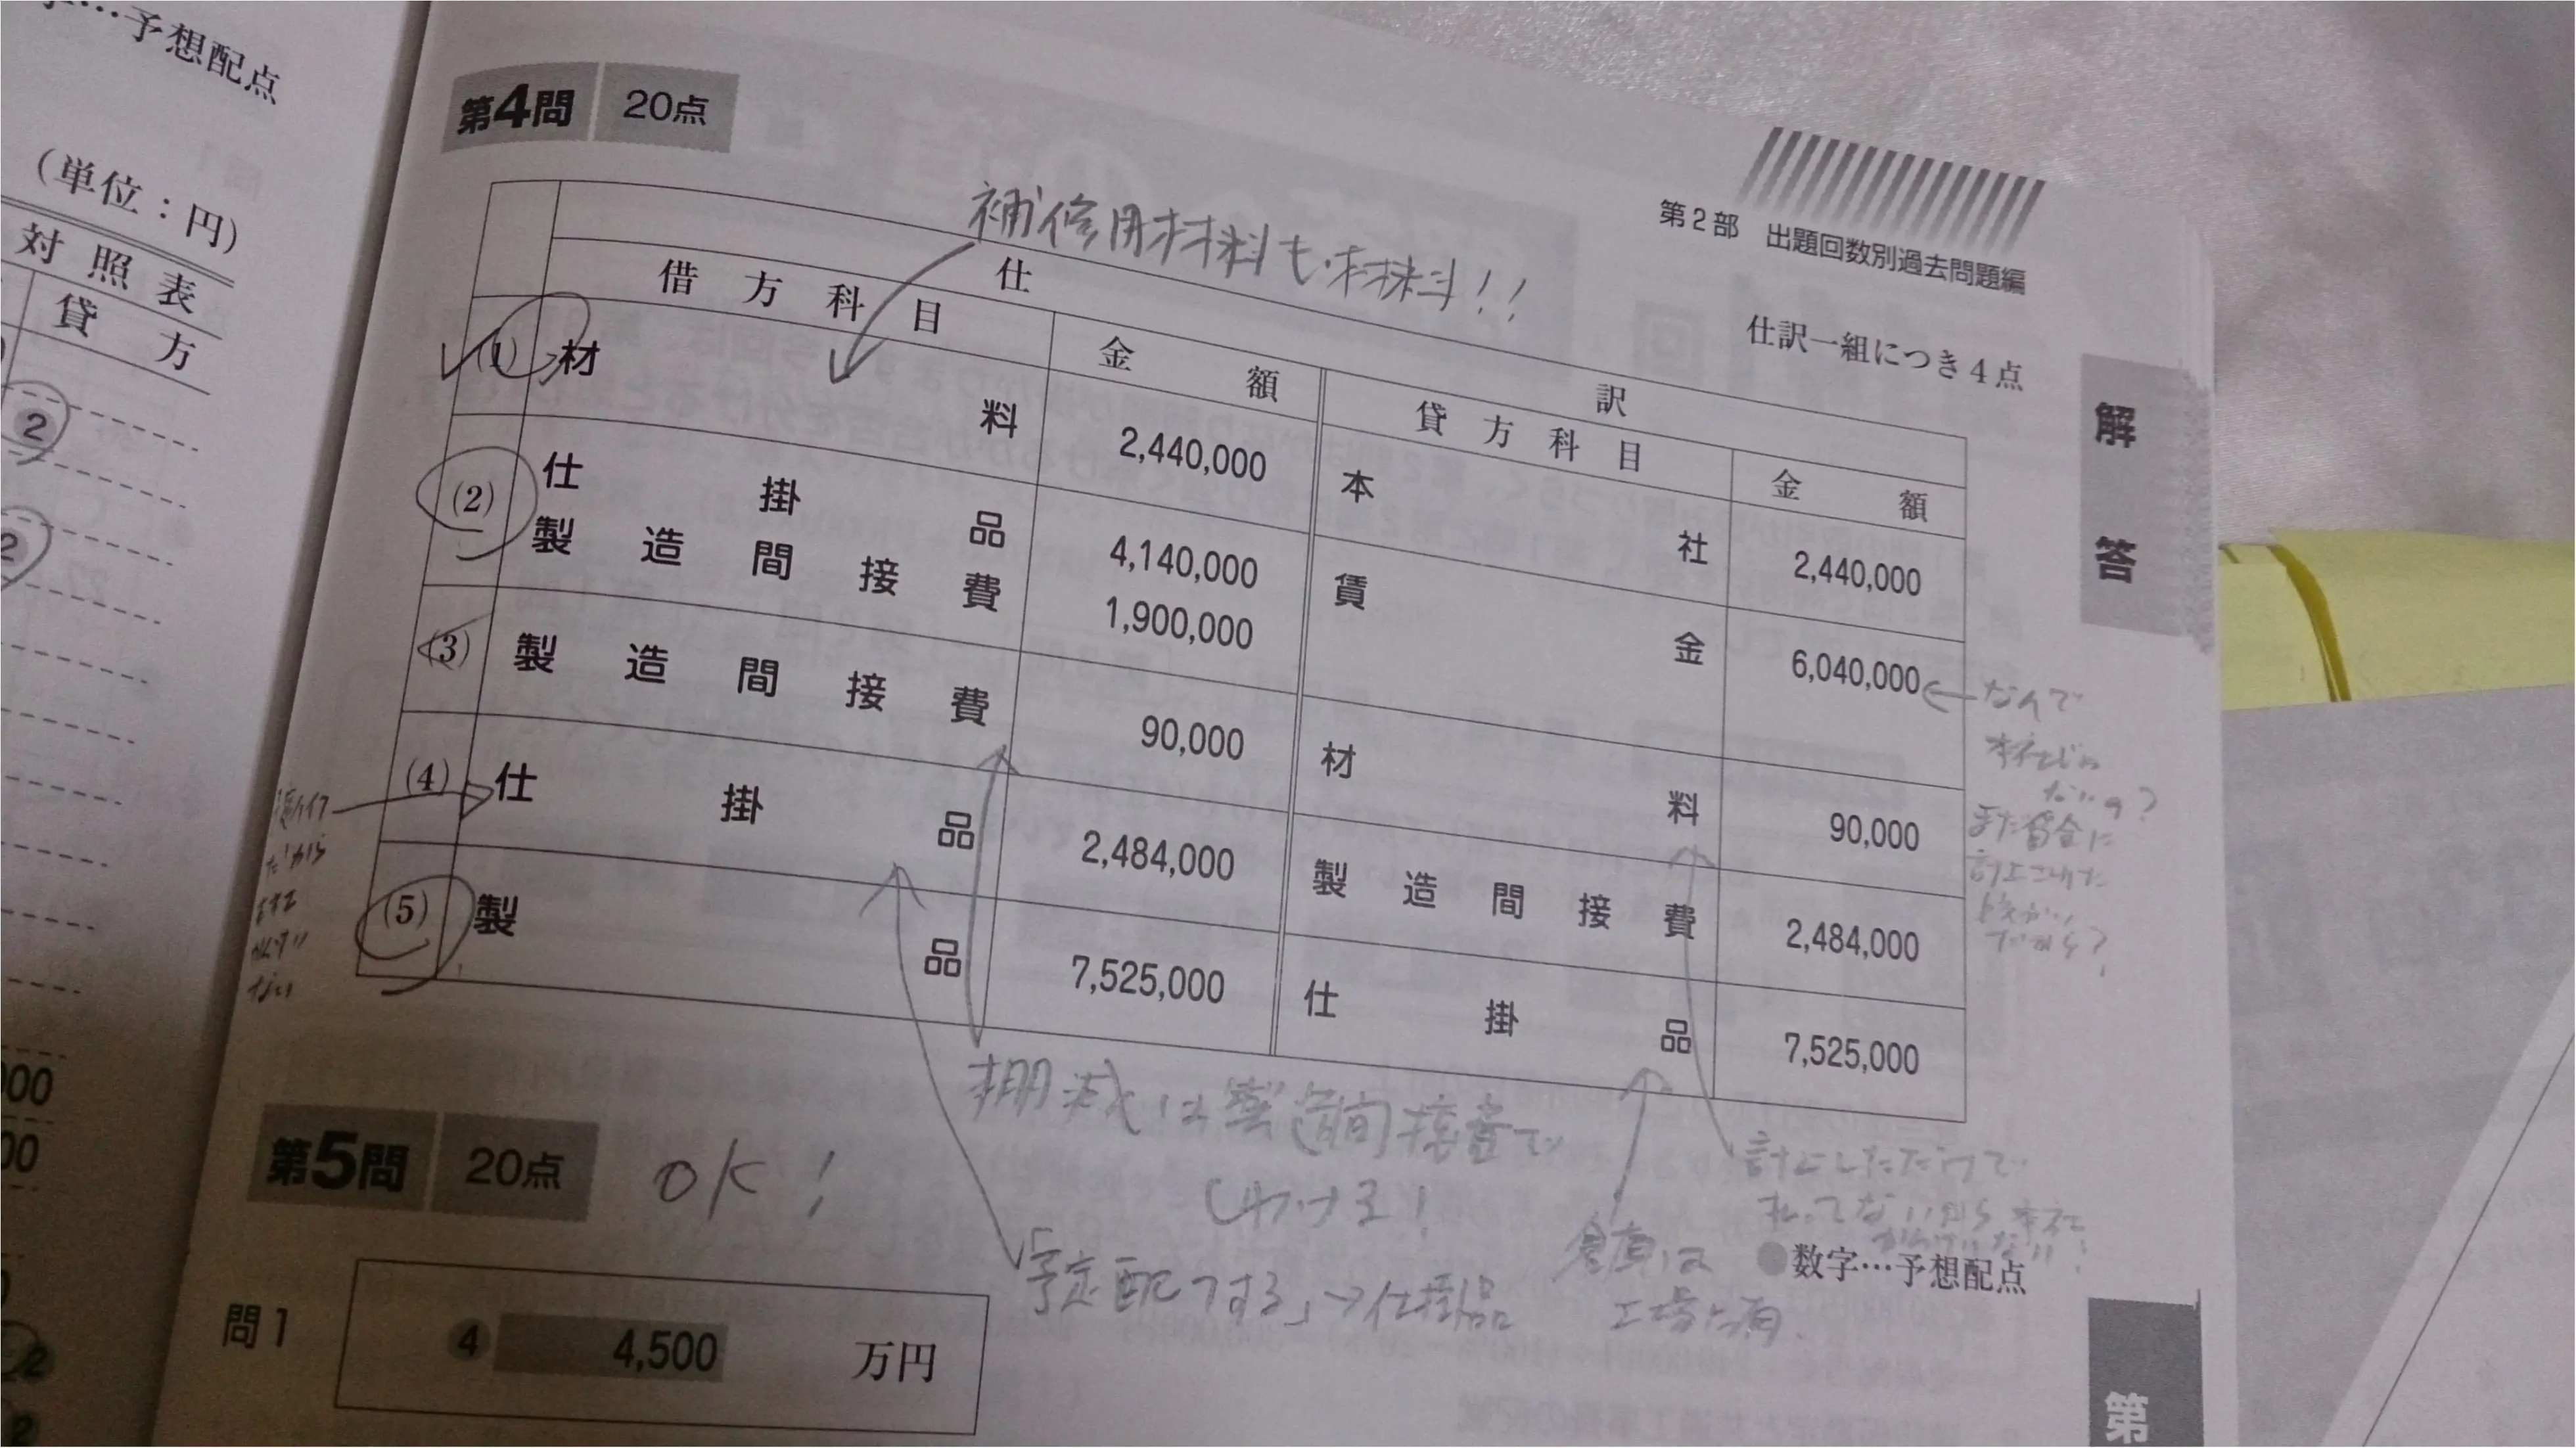 …予想配点
(単位:円)
対照表
貸方
2
2
第4問 20点
第2部 出題回数別過去問題編
仕訳一組につき4点
補修用材料も材料!!
仕 訳
借方科目 金額 貸方科目 金額
(1) 材料 2,440,000 本社 2,440,000
(2) 仕掛品 4,140,000 賃金 6,040,000
製造間接費 1,900,000
(3) 製造間接費 90,000 材料 90,000
(4) 仕掛品 2,484,000 製造間接費 2,484,000
(5) 製品 7,525,000 仕掛品 7,525,000
なんで
本社じゃ
ないの?
また賃金に
計上された
だから?
だから
ない
棚減は製造間接費で
しわける!
計上しただけで
「予定配フする」→仕掛品
倉庫は
工場に有
●数字…予想配点
第5問 20点 OK!
問1 4 4,500 万円
解答
第
00
00
2
2